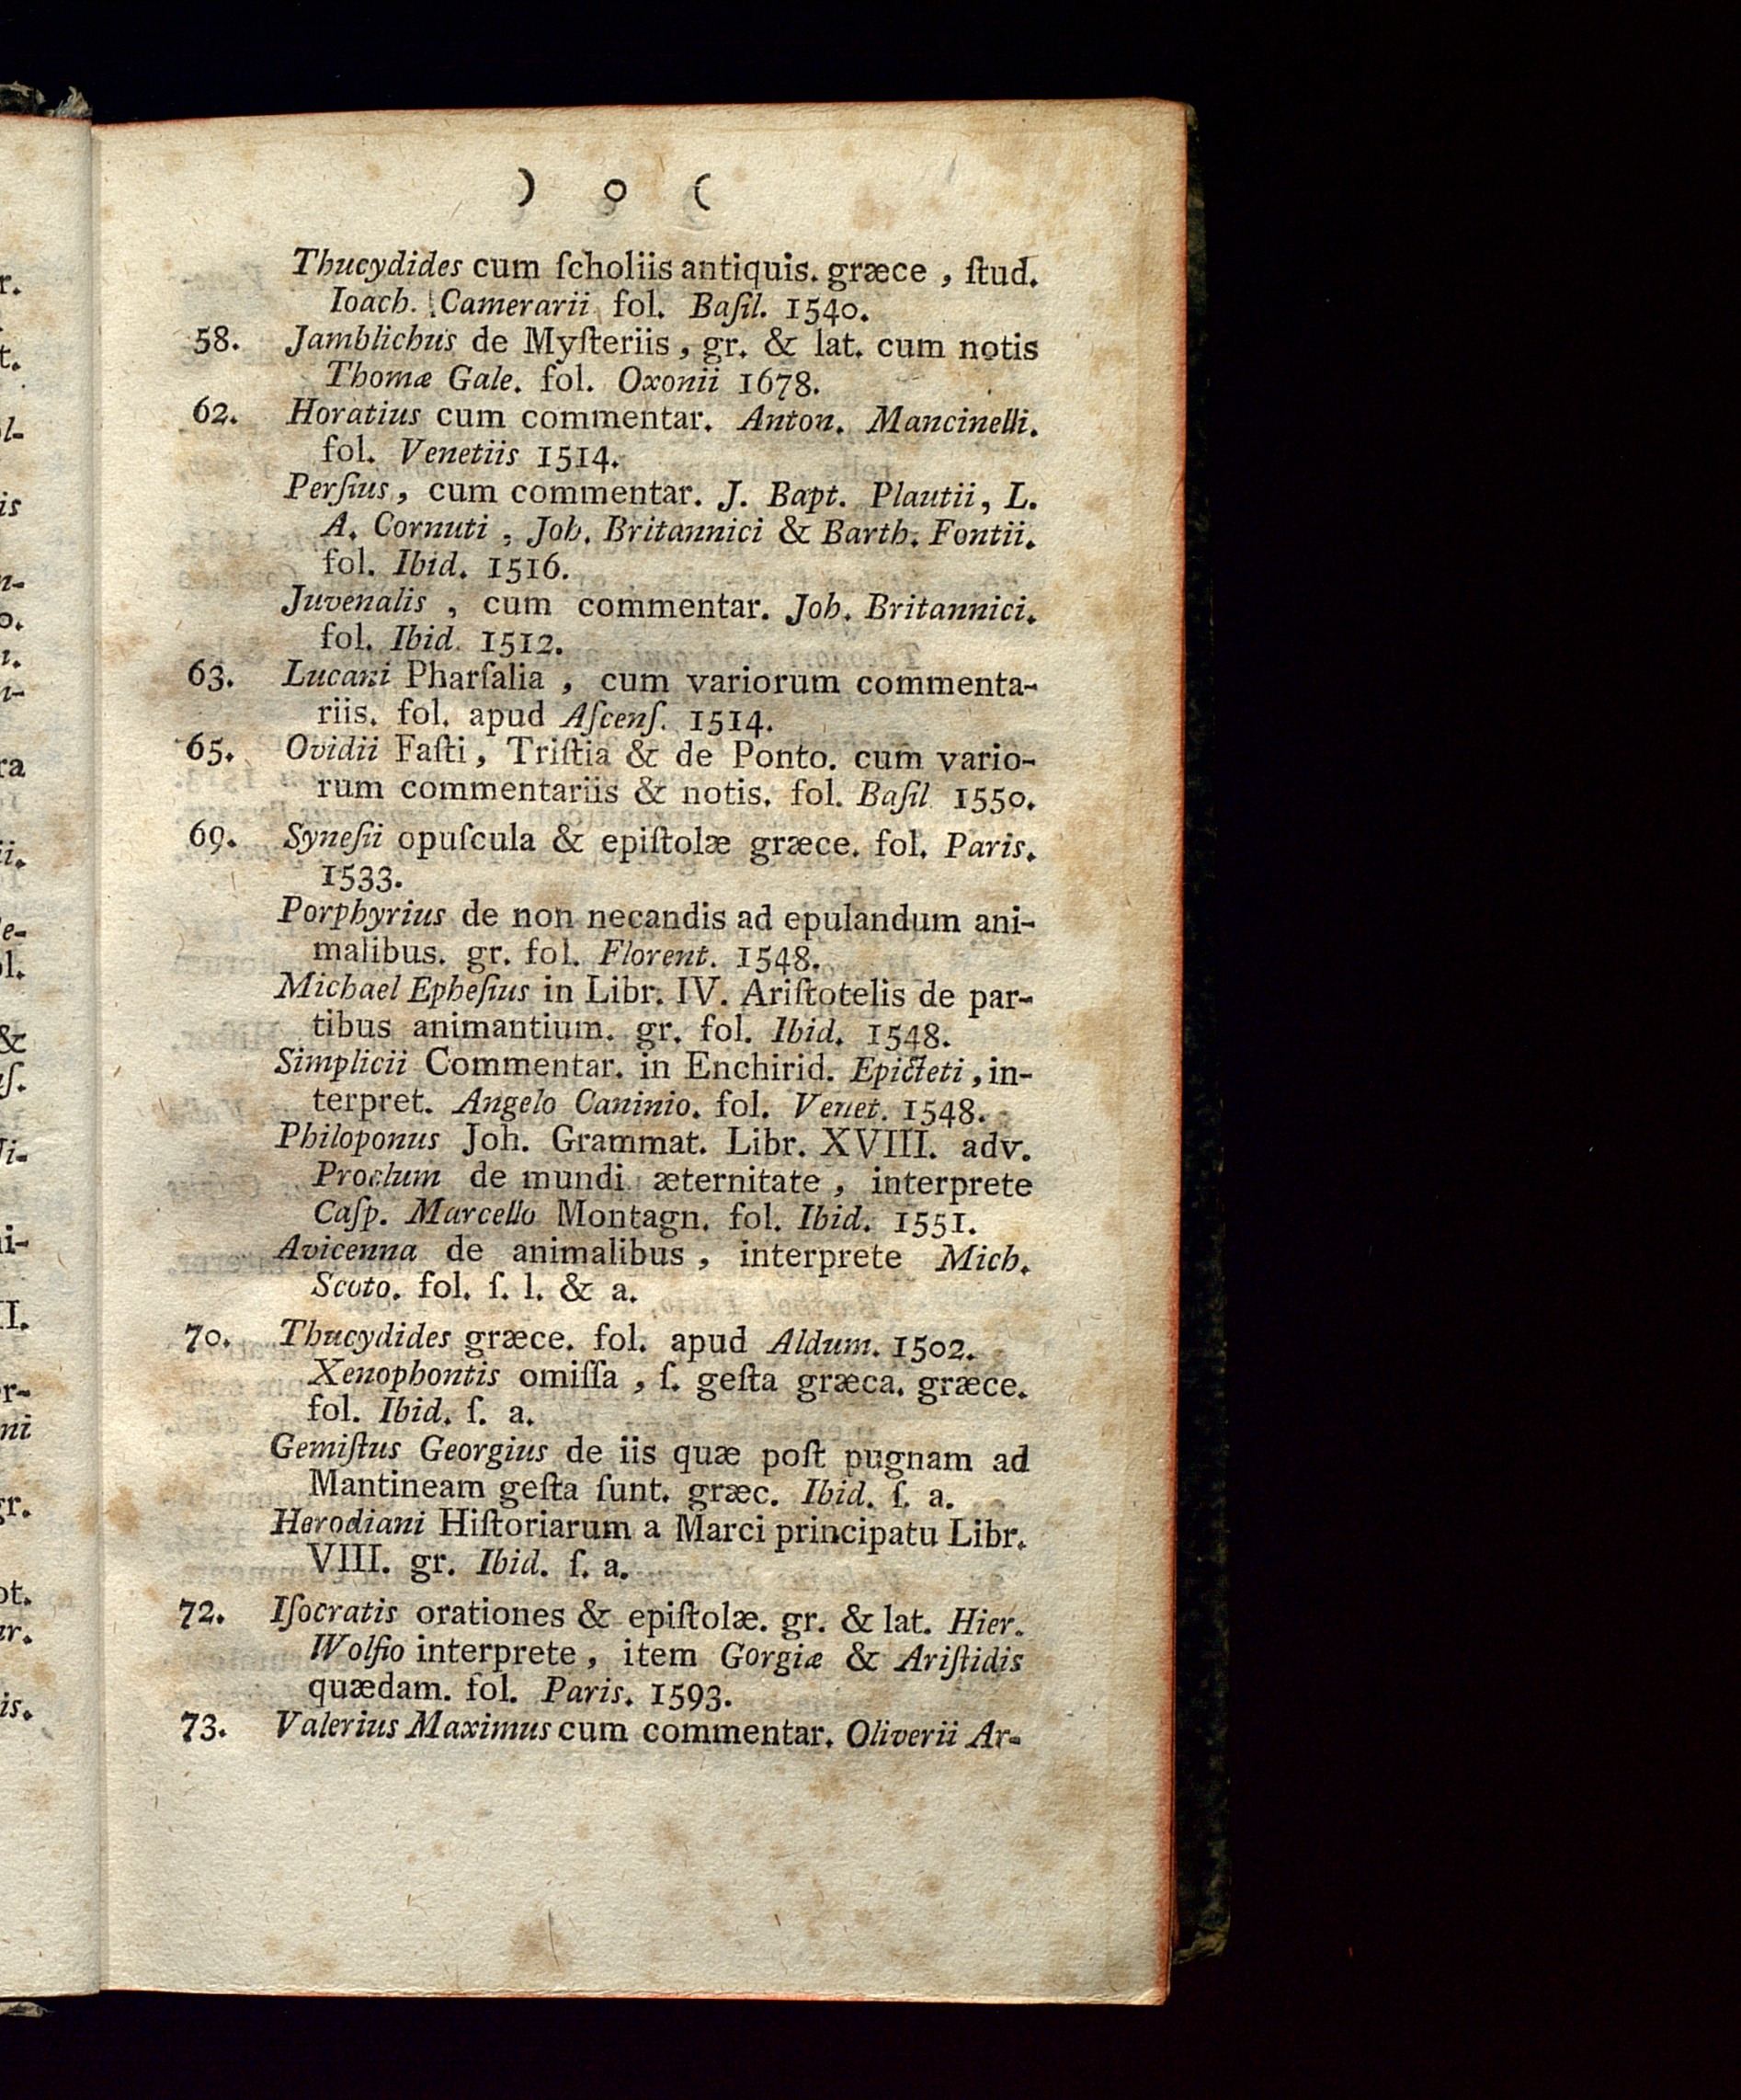 ) o (
Thucydides cum ſcholiis antiquis. græce , ſtud.
Ioach. Camerarii fol. Baſil. 1540.
58. Jamblichus de Myſteriis , gr. & lat. cum notis
Thomæ Gale. fol. Oxonii 1678.
62. Horatius cum commentar. Anton. Mancinelli.
fol. Venetiis 1514.
Perſius , cum commentar. J. Bapt. Plautii, L.
A. Cornuti , Joh. Britannici & Barth. Fontii.
fol. Ibid. 1516.
Juvenalis , cum commentar. Joh. Britannici.
fol. Ibid. 1512.
63. Lucani Pharſalia , cum variorum commenta-
riis. fol. apud Aſcenſ. 1514.
65. Ovidii Faſti , Triſtia & de Ponto. cum vario-
rum commentariis & notis. fol. Baſil 1550.
69. Syneſii opuſcula & epiſtolæ græce. fol. Paris.
1533.
Porphyrius de non necandis ad epulandum ani-
malibus. gr. fol. Florent. 1548.
Michael Epheſius in Libr. IV. Ariſtotelis de par-
tibus animantium. gr. fol. Ibid. 1548.
Simplicii Commentar. in Enchirid. Epicteti , in-
terpret. Angelo Caninio. fol. Venet. 1548.
Philoponus Joh. Grammat. Libr. XVIII. adv.
Proclum de mundi æternitate , interprete
Caſp. Marcello Montagn. fol. Ibid. 1551.
Avicenna de animalibus , interprete Mich.
Scoto. fol. ſ. l. & a.
70. Thucydides græce. fol. apud Aldum. 1502.
Xenophontis omiſſa , ſ. geſta græca. græce.
fol. Ibid. ſ. a.
Gemiſtus Georgius de iis quæ poſt pugnam ad
Mantineam geſta ſunt. græc. Ibid. ſ. a.
Herodiani Hiſtoriarum a Marci principatu Libr.
VIII. gr. Ibid. ſ. a.
72. Iſocratis orationes & epiſtolæ. gr. & lat. Hier.
Wolfio interprete , item Gorgiæ & Ariſtidis
quædam. fol. Paris. 1593.
73. Valerius Maximus cum commentar. Oliverii Ar-